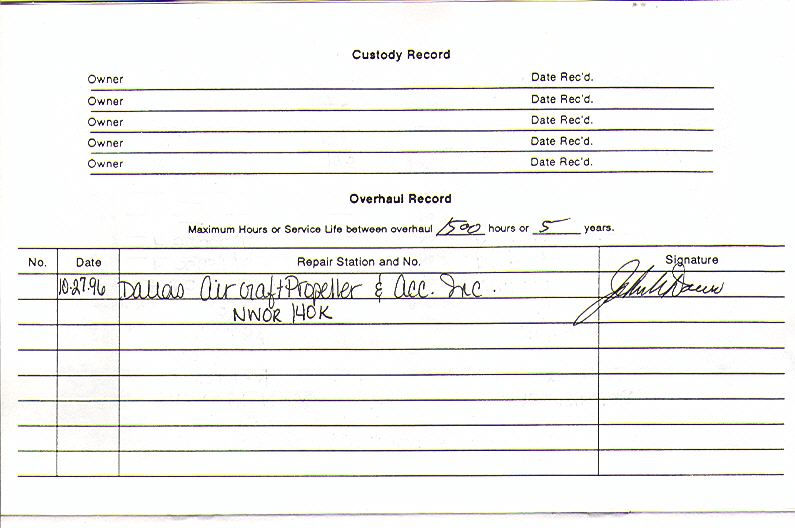 Custody Record
Owner Date Rec'd.
Owner Date Rec'd.
Owner Date Rec'd.
Owner Date Rec'd.
Owner Date Rec'd.
Overhaul Record
Maximum Hours or Service Life between overhaul 1500 hours or 5 years.
No. Date Repair Station and No. Signature
10-27-96 Dallas Aircraft Propeller & Acc. Inc.
NWOR 140K